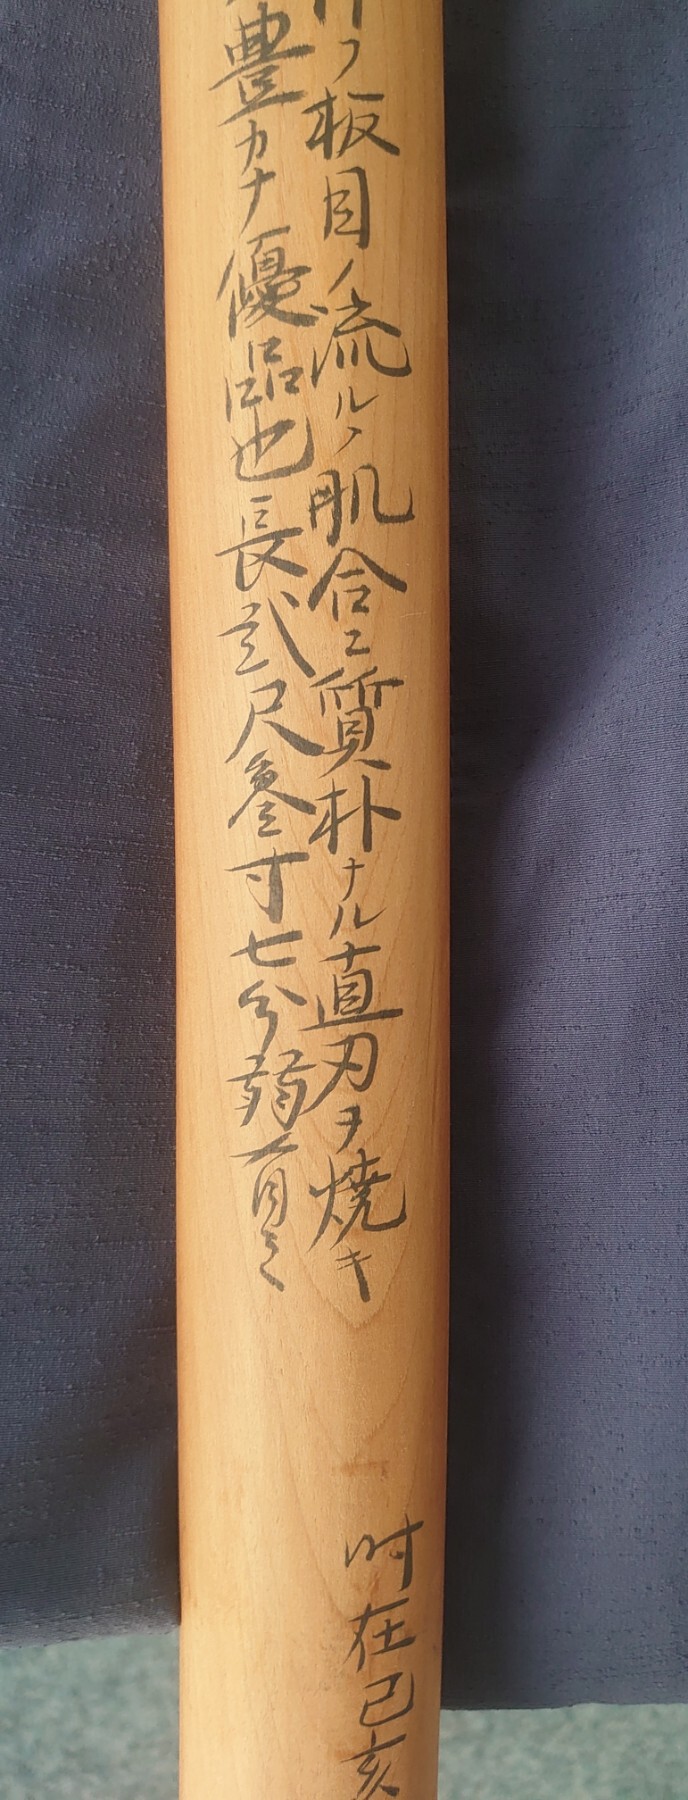 フ板目ノ流ルヽ肌合ニ質朴ナル直刃ヲ焼キ
豊カナ優品也長弐尺参寸七分弱有之
時在己亥